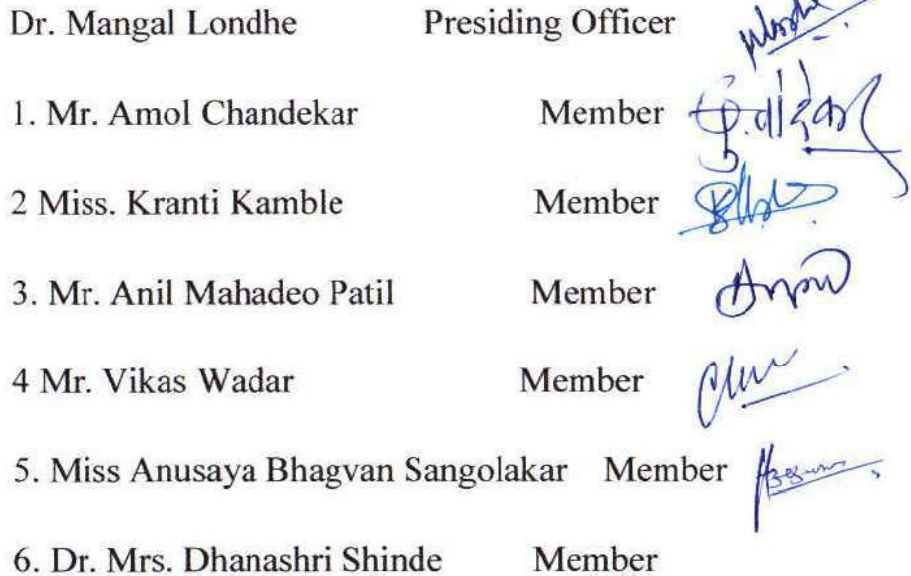 Dr. Mangal Londhe Presiding Officer
1. Mr. Amol Chandekar Member
2 Miss. Kranti Kamble Member
3. Mr. Anil Mahadeo Patil Member
4 Mr. Vikas Wadar Member
5. Miss Anusaya Bhagvan Sangolakar Member
6. Dr. Mrs. Dhanashri Shinde Member